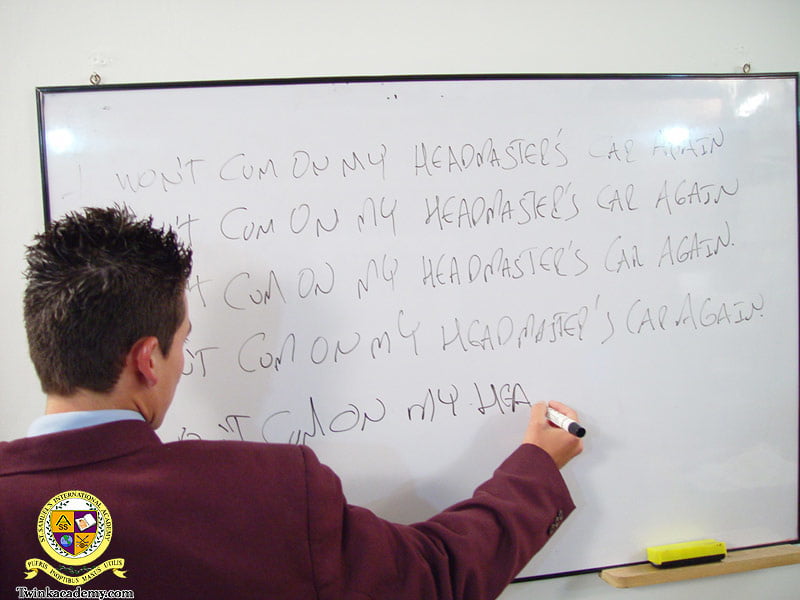 I WON'T CUM ON MY HEADMASTER'S CAR AGAIN
N'T CUM ON MY HEADMASTER'S CAR AGAIN
'T CUM ON MY HEADMASTER'S CAR AGAIN.
N'T CUM ON MY HEADMASTER'S CAR AGAIN.
ON'T CUM ON MY HEA
ST. SAMUEL'S INTERNATIONAL ACADEMY
SS
PUTRIS INOPTIBUS MANUS UTILIS
Twinkacademy.com